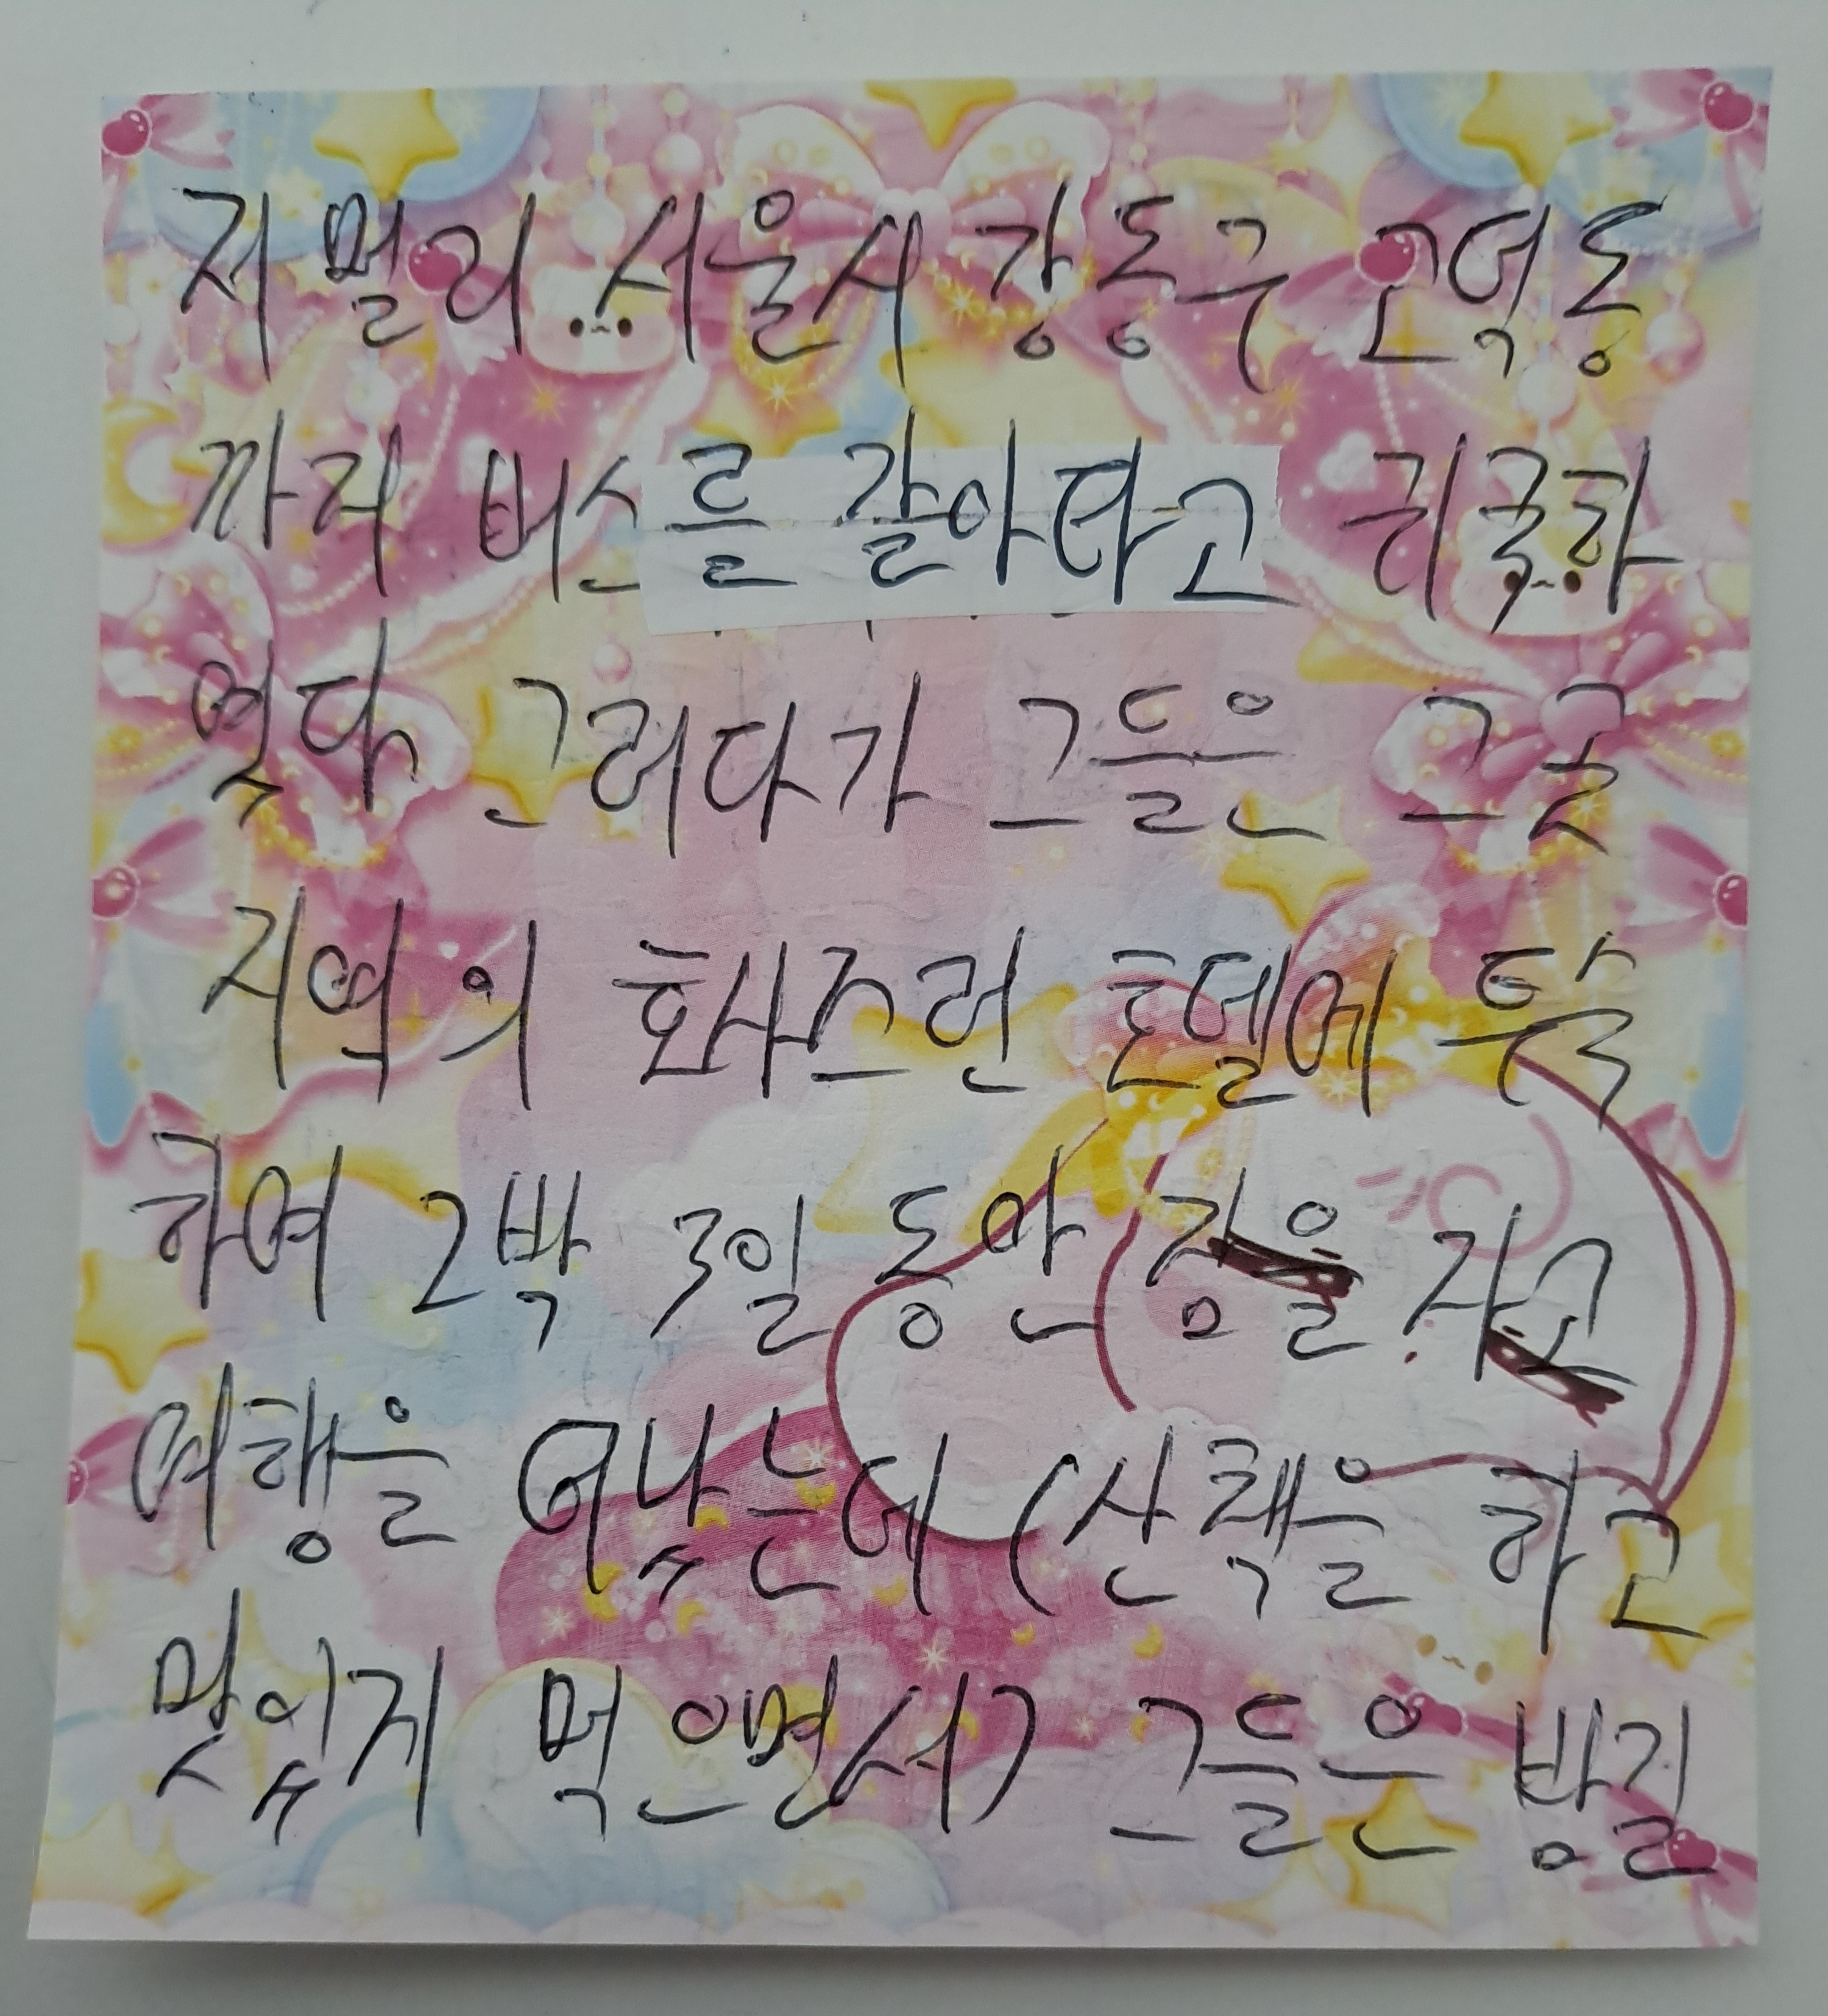 저 멀리 서울시 강동구 고덕동
까지 버스를 갈아타고 귀국하
였다 그러다가 그들은 그곳
지역의 호화스런 호텔에 투숙
하여 2박 3일 동안 잠을 자고
여행을 떠났는데 (산책을 하고
맛있게 먹으면서) 그들은 밤길